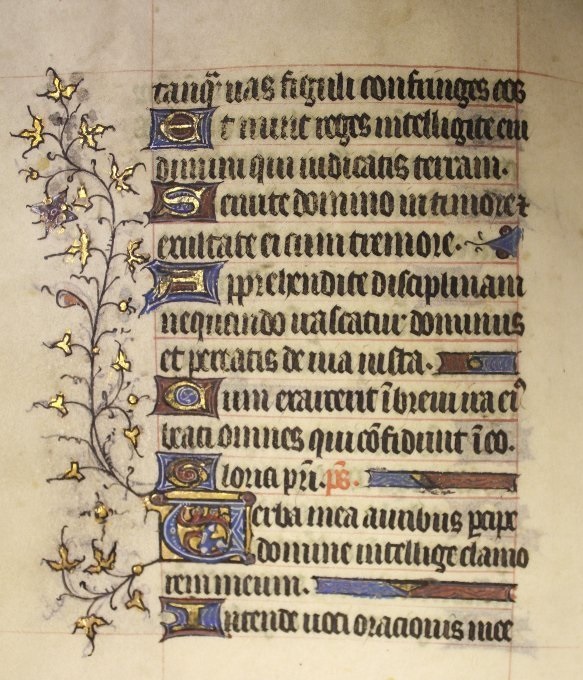 tanq̃ uas figuli confringes eos
Et nunc reges intelligite eru
dimini qui iudicatis terram.
Seruite domino in timore ⁊
exultate ei cum tremore.
Apprehendite disciplinam
nequando irascatur dominus
et pereatis de uia iusta.
Cum exarserit ī breui ira eiꝰ
beati omnes qui cõfidunt ī eo.
Gloria pr̃i. ps̃.
Uerba mea auribus ꝑcipe
domine intellige clamo
rem meum.
Intende uoci oracionis mee